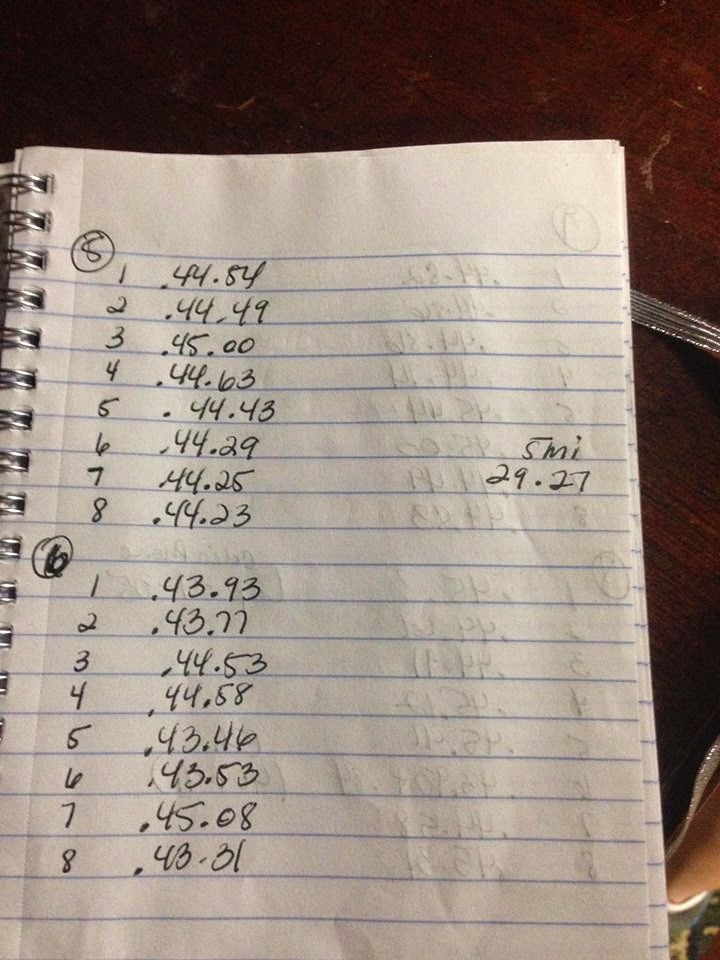 5
1 .44.54
2 .44.49
3 .45.00
4 .44.63
5 .44.43
6 .44.29 5mi
7 .44.25 29.27
8 .44.23
6
1 .43.93
2 .43.77
3 .44.53
4 .44.58
5 .43.46
6 .43.53
7 .45.08
8 .43.31